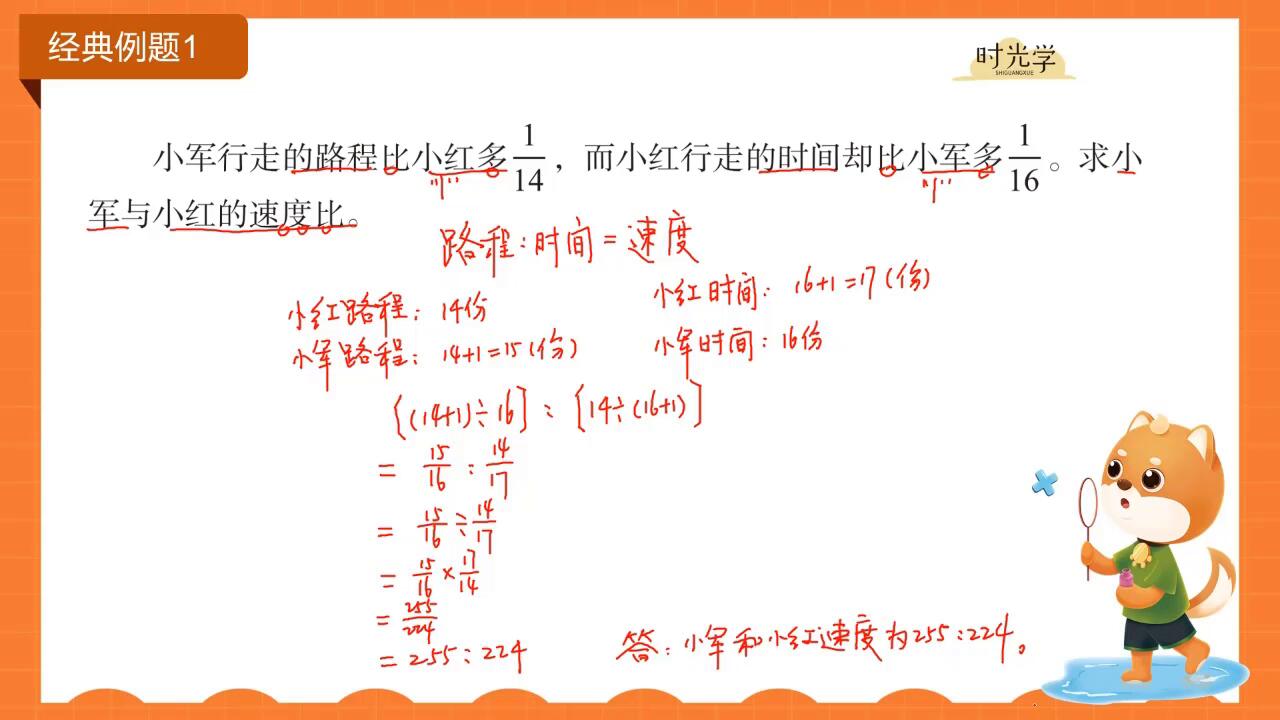 经典例题1
时光学
SHIGUANGXUE
小军行走的路程比小红多1/14，而小红行走的时间却比小军多1/16。求小
军与小红的速度比。
"1" "1"
路程:时间=速度
小红路程: 14份 小红时间: 16+1=17(份)
小军路程: 14+1=15(份) 小军时间: 16份
[(14+1)÷16]:[14÷(16+1)]
= 15/16 : 14/17
= 15/16 ÷ 14/17
= 15/16 × 17/14
= 255/224
= 255:224
答:小军和小红速度为255:224。